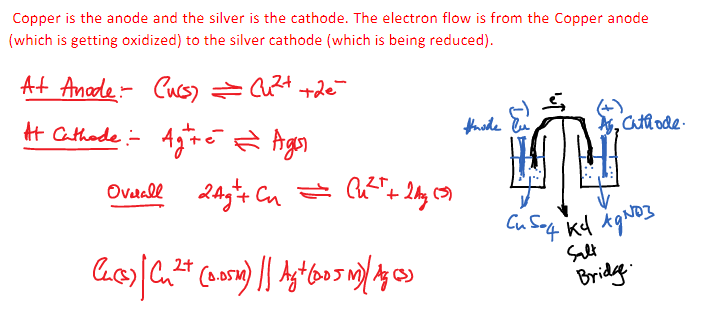 Copper is the anode and the silver is the cathode. The electron flow is from the Copper anode
(which is getting oxidized) to the silver cathode (which is being reduced).
At Anode:- Cu(s) ⇌ Cu²⁺ +2e⁻
At Cathode:- Ag⁺+e⁻ ⇌ Ag(s)
Overall 2Ag⁺+ Cu ⇌ Cu²⁺+ 2Ag (s)
Cu(s)|Cu²⁺ (0.05M) || Ag⁺(0.05M)|Ag (s)
e⁻
(-) (+)
Anode Cu Ag, Cathode.
CuSO4 KCl AgNO3
Salt
Bridge.